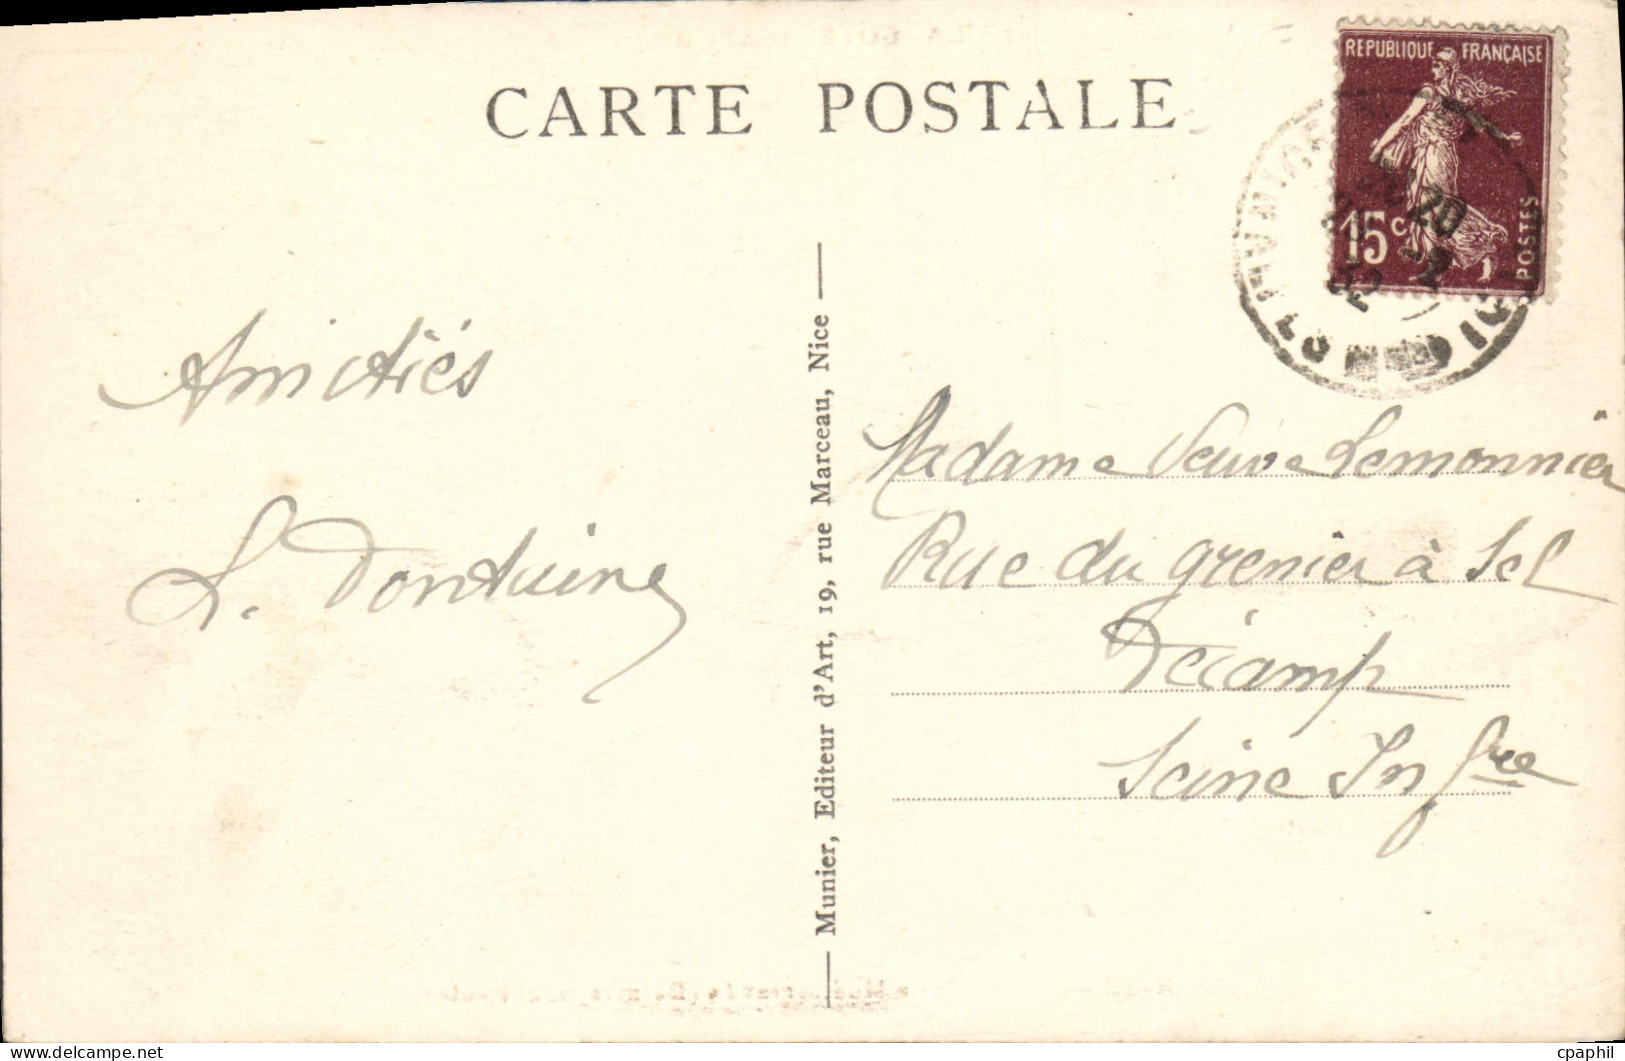 CARTE POSTALE
REPUBLIQUE FRANÇAISE
15c
POSTES
Amitiés
L. Dontaine
Munier, Editeur d'Art, 19, rue Marceau, Nice
Madame Veuve Lemonnier
Rue du grenier à Sel
Fécamp
Seine Infre
delcampe.net
cpaphil